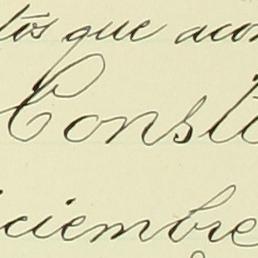 tos que acom
Consti
iciembre